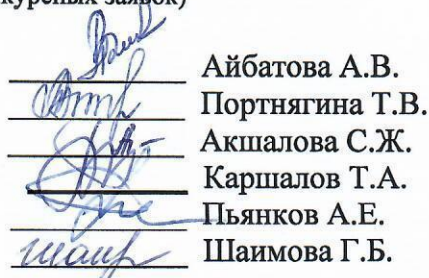 курсных заявок)
Айбатова А.В.
Портнягина Т.В.
Акшалова С.Ж.
Каршалов Т.А.
Пьянков А.Е.
Шаимова Г.Б.